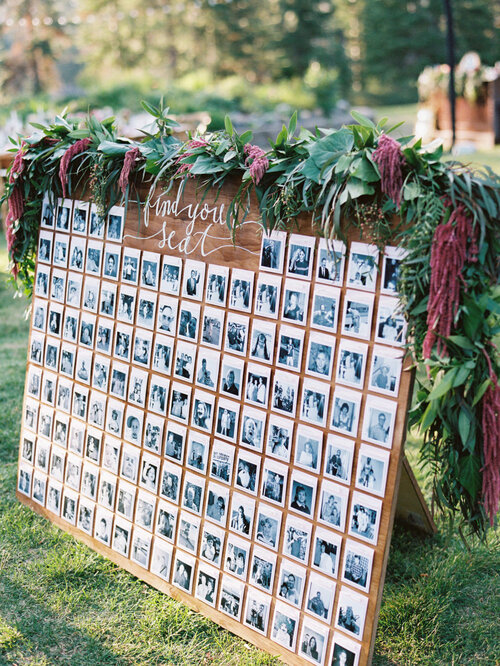 find your
seat